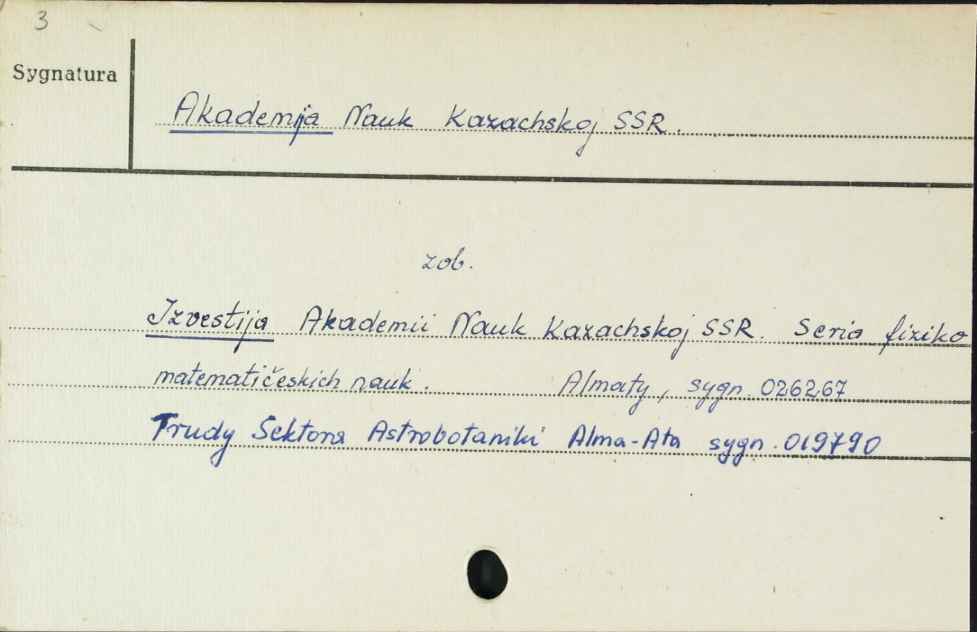 3
Sygnatura
Akademija Nauk Kazachskoj SSR.
zob.
Izvestija Akademii Nauk Kazachskoj SSR. Seria fiziko
matematičeskich nauk. Almaty, sygn. 026267
Trudy Sektora Astrobotaniki Alma-Ata sygn. 019790